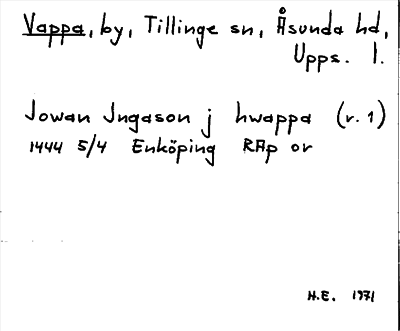 Vappa, by, Tillinge sn, Åsunda hd,
Upps. l.
Jowan Jngason j hwappa (r. 1)
1444 5/4 Enköping RAp or
H.E. 1971